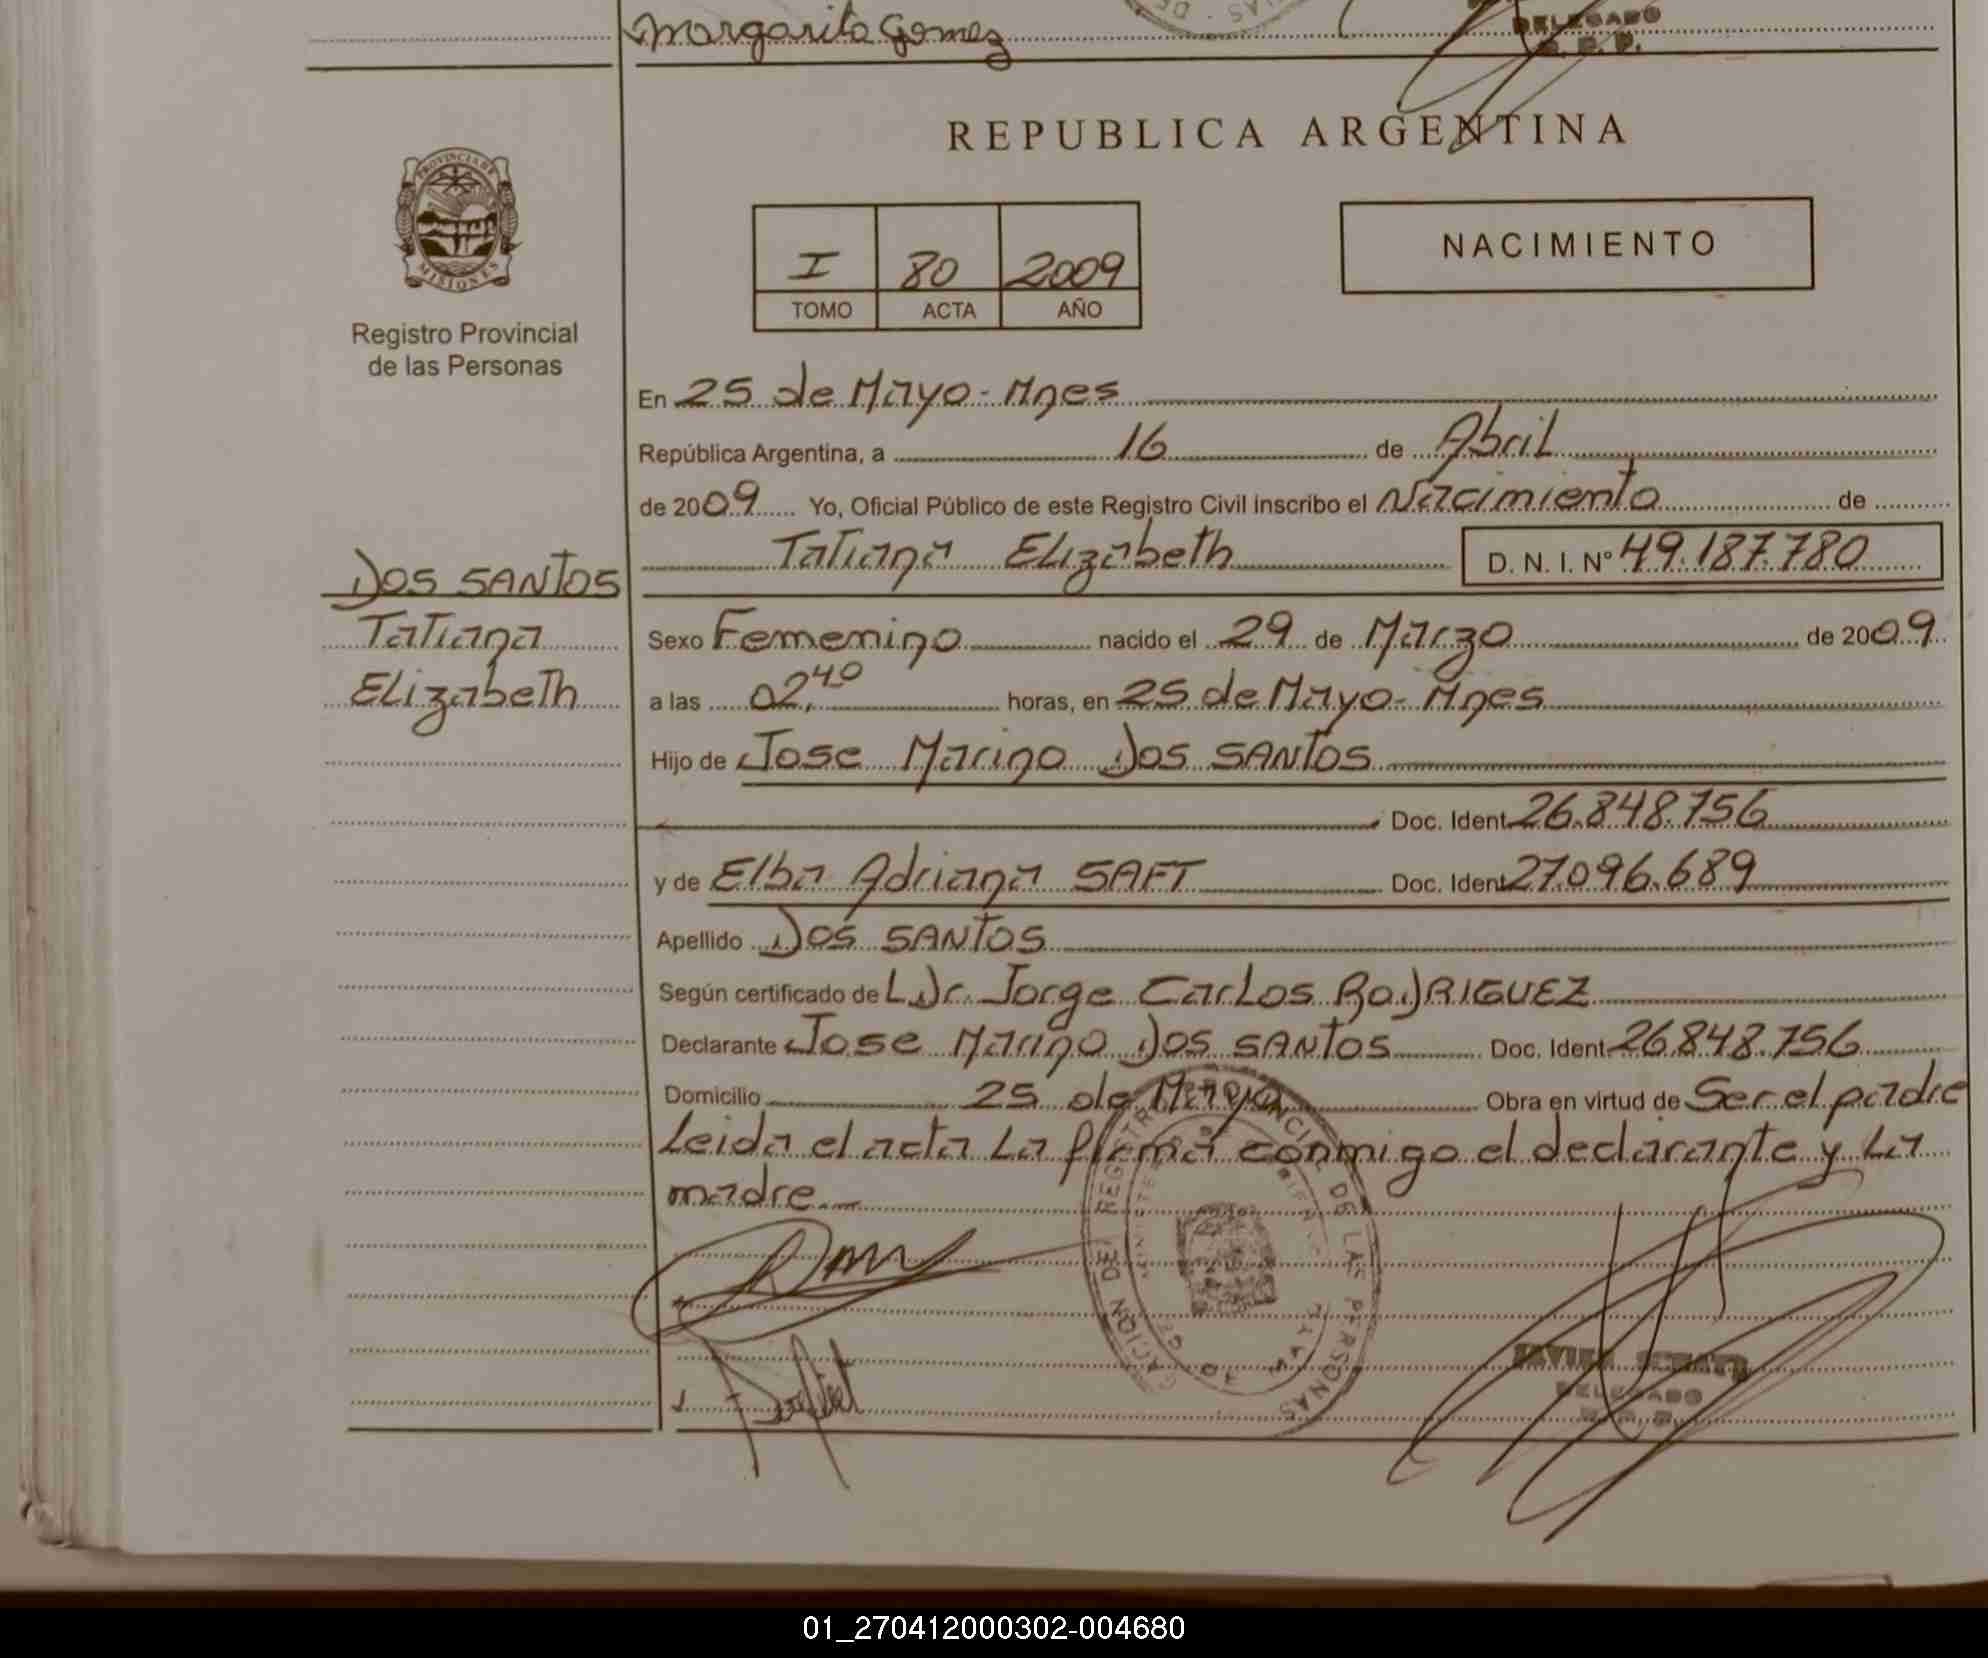 Margarita Gomez
DELEGADO
R. P. P.
REPUBLICA ARGENTINA
PROVINCIA DE
MISIONES
Registro Provincial
de las Personas
I 80 2009
TOMO ACTA AÑO
NACIMIENTO
En 25 de Mayo - Mnes
República Argentina, a 16 de Abril
de 2009 Yo, Oficial Público de este Registro Civil inscribo el Nacimiento de
Tatiana Elizabeth D. N. I. Nº 49.187.780
DOS SANTOS
Tatiana
Elizabeth
Sexo Femenino nacido el 29 de Marzo de 2009
a las 02,40 horas, en 25 de Mayo - Mnes
Hijo de Jose Marino DOS SANTOS
Doc. Ident 26.848.756
y de Elba Adriana SAFT Doc. Ident 27.096.689
Apellido DOS SANTOS
Según certificado de L Dr. Jorge Carlos RODRIGUEZ
Declarante Jose Marino DOS SANTOS Doc. Ident 26.848.756
Domicilio 25 de Mayo Obra en virtud de Ser el padre
Leida el acta La firma conmigo el declarante y La
madre.
DELEGADO
01_270412000302-004680